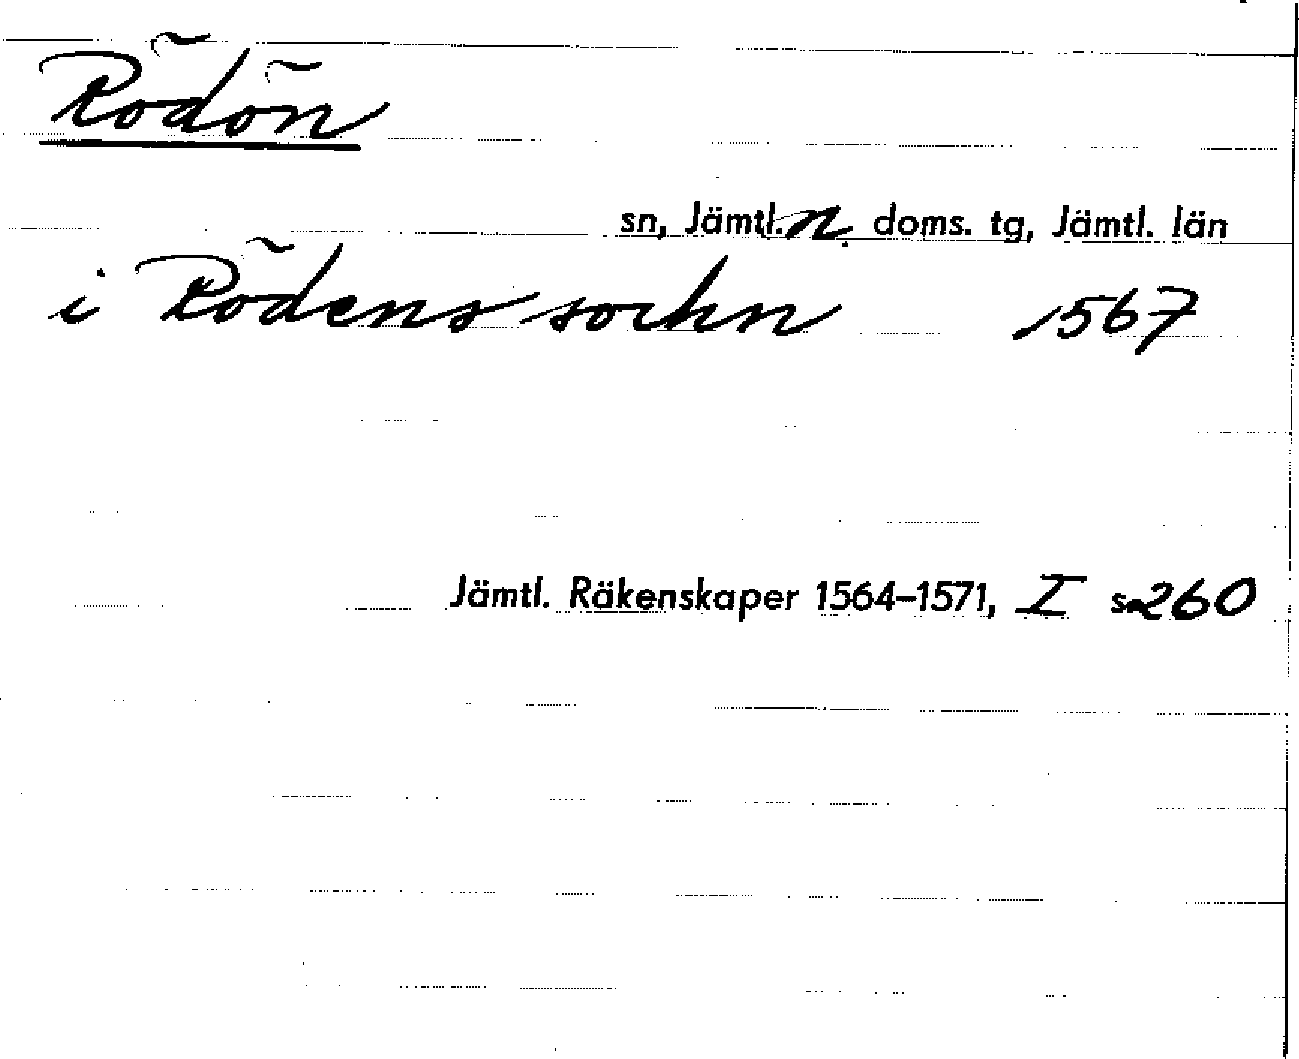 Rödön
sn, Jämtl. n. doms. tg, Jämtl. län
i Rödens sochn 1567
Jämtl. Räkenskaper 1564–1571, I s. 260